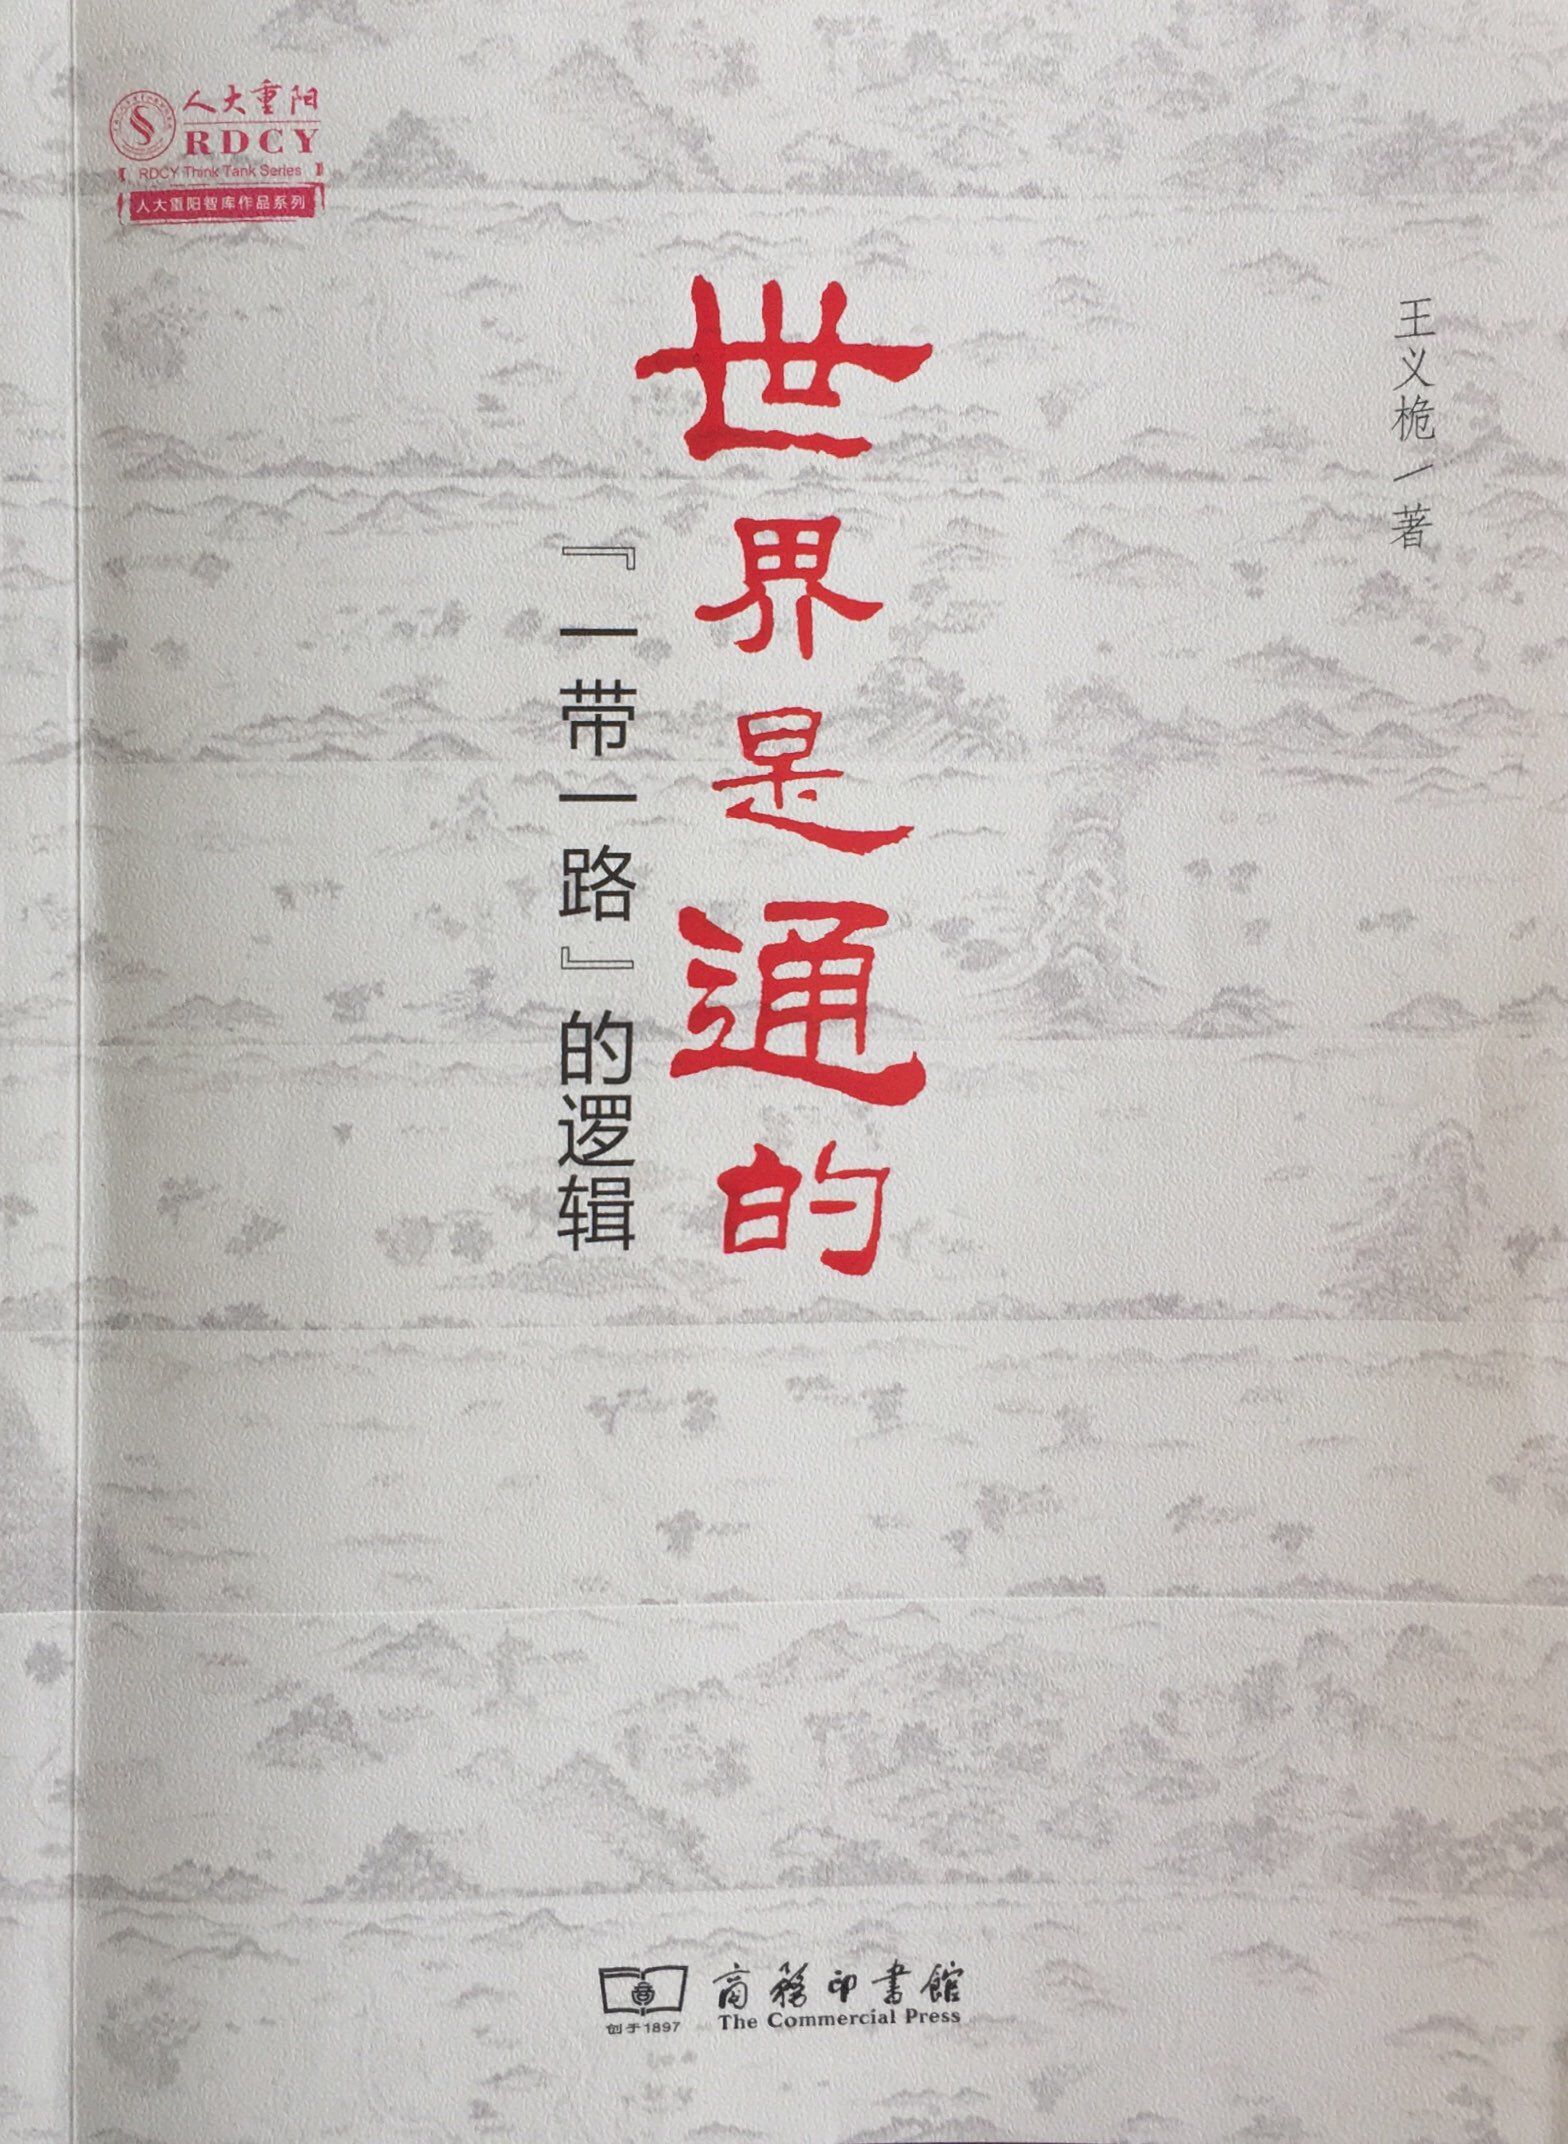 人大重阳
RDCY
RDCY Think Tank Series
人大重阳智库作品系列
王义桅/著
世界是通的
『一带一路』的逻辑
商務印書館
创于1897
The Commercial Press